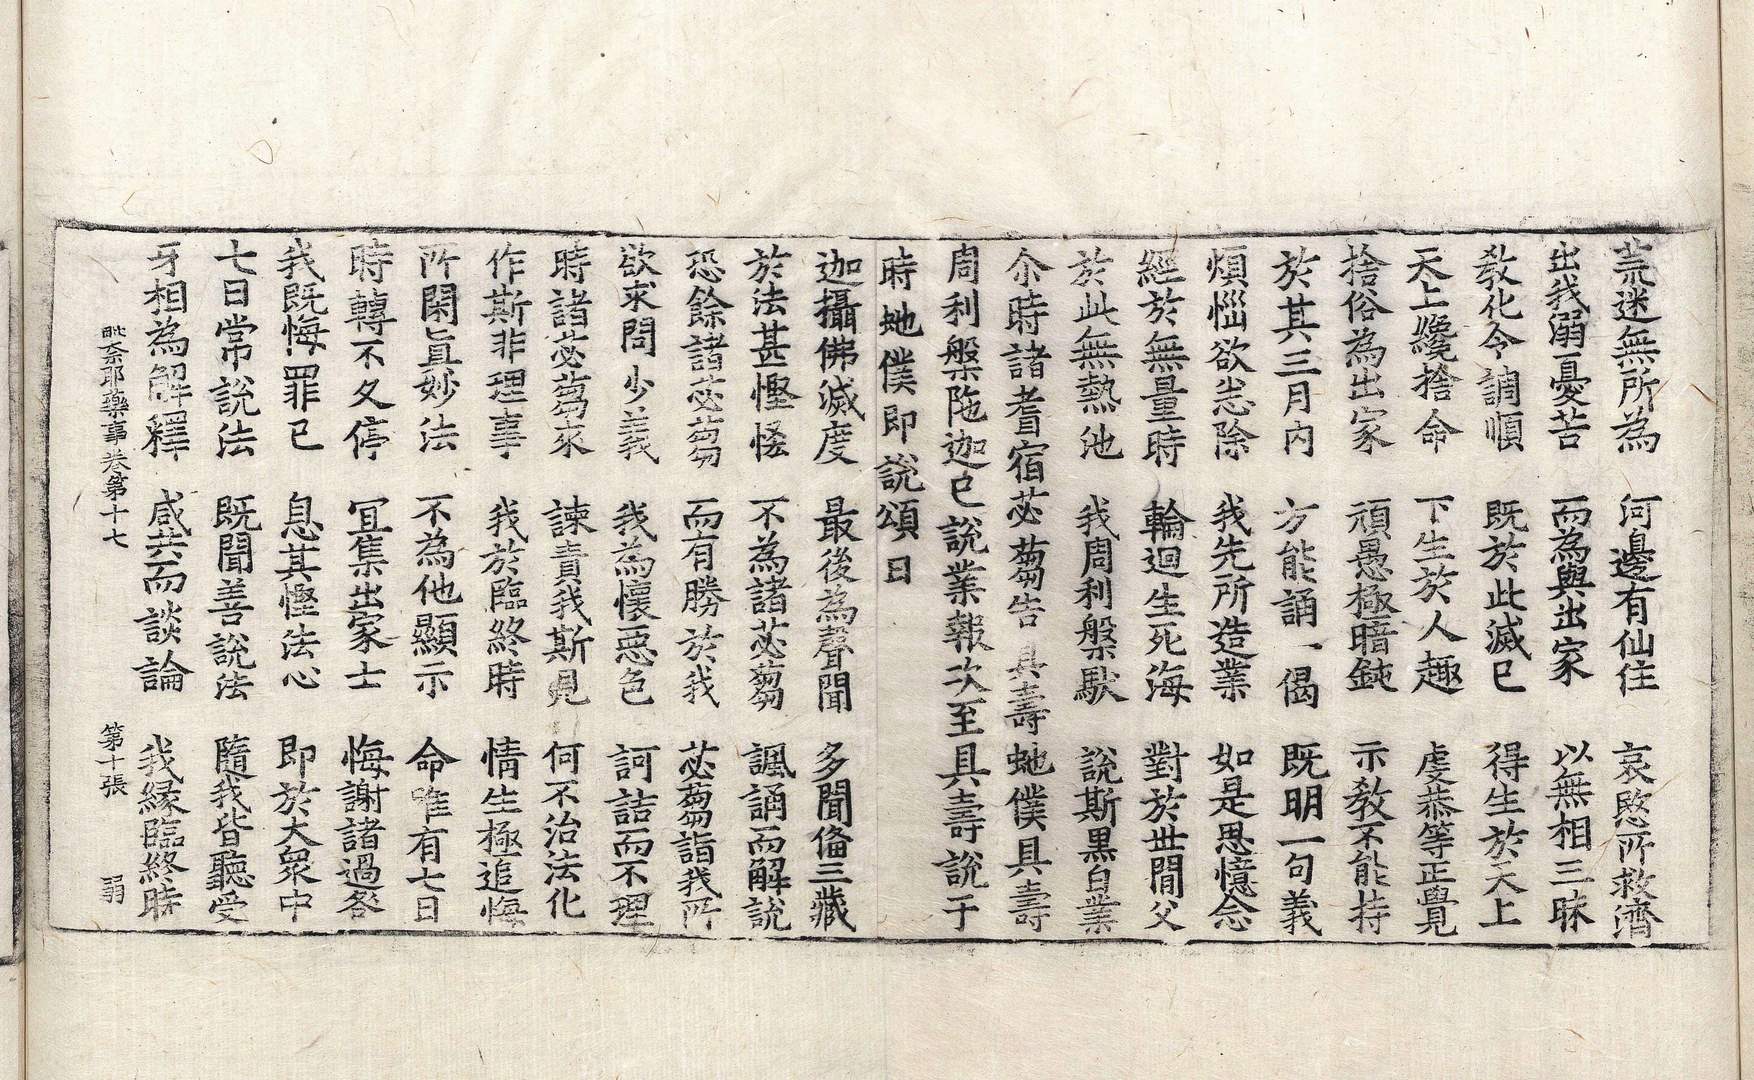 荒迷無所為 何邊有仙住 哀愍所救濟
出我溺憂苦 而為與出家 以無相三昧
敎化令調順 既於此滅已 得生於天上
天上纔捨命 下生於人趣 虔恭等正覺
捨俗為出家 頑愚極暗鈍 示敎不能持
於其三月內 方能誦一偈 既明一句義
煩惱欲悉除 我先所造業 如是思憶念
經於無量時 輪迴生死海 對於世間父
於此無熱池 我周利槃馱 說斯黑白業
尒時諸耆宿苾蒭告具壽虵僕具壽
周利槃陁迦已說業報次至具壽說于
時虵僕即說頌曰
迦攝佛滅度 最後為聲聞 多聞俻三藏
於法甚慳悋 不為諸苾蒭 諷誦而解說
恐餘諸苾蒭 而有勝於我 苾蒭詣我所
欲求問少義 我為懷惡色 訶詰而不理
時諸苾蒭來 諫責我斯見 何不治法化
作斯非理事 我於臨終時 情生極追悔
所聞眞妙法 不為他顯示 命唯有七日
時轉不久停 冝集出家士 悔謝諸過咎
我既悔罪已 息其慳法心 即於大衆中
七日常說法 既聞善說法 隨我皆聽受
牙相為解釋 咸共而談論 我緣臨終時
毗奈耶藥事卷第十七 第十張 弱